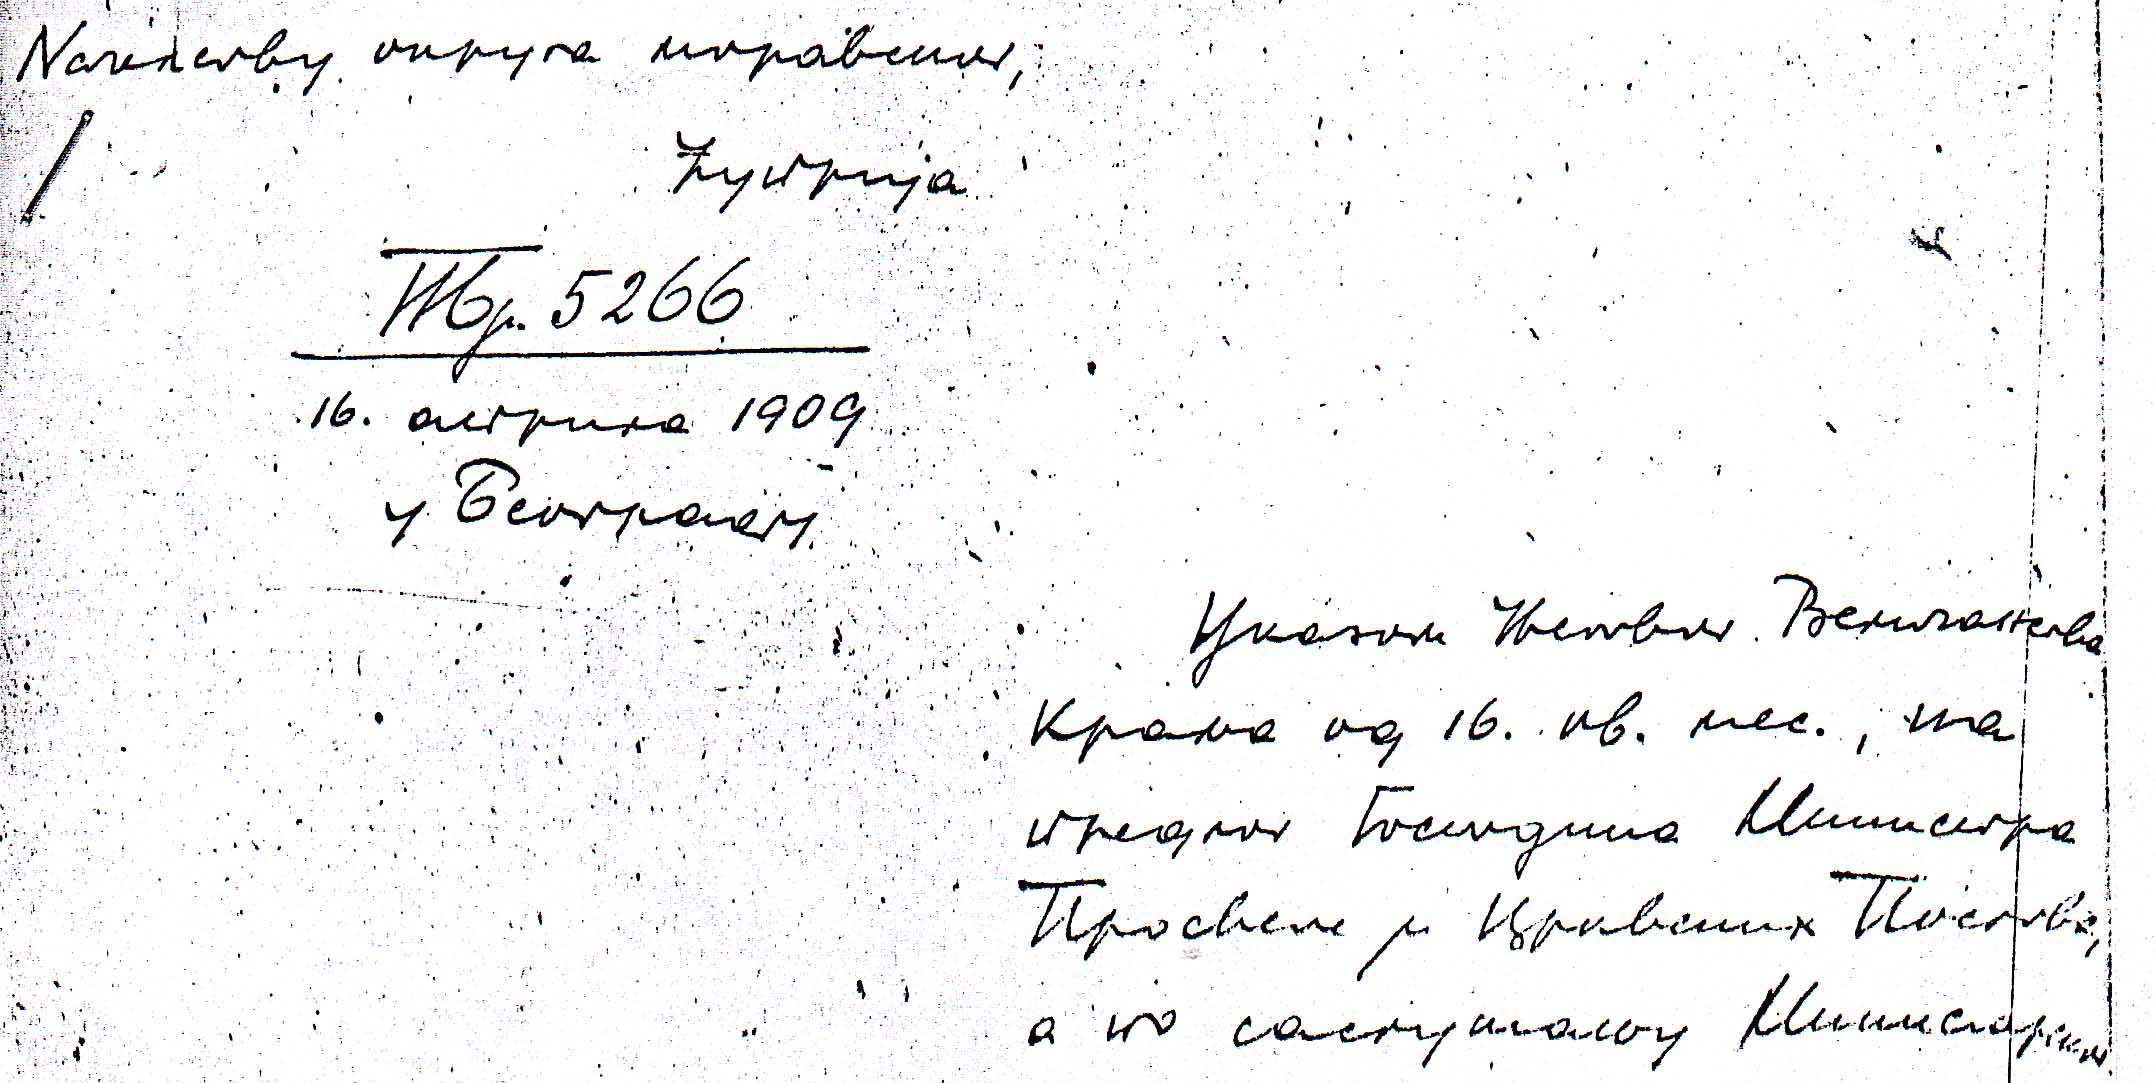 Начелству округа моравског,
Ћуприја
ПБр. 5266
16. априла 1909
у Београду
Указом Његовог Величанства
Краља од 16. ов. мес., на
предлог Господина Министра
Просвете и Црквених Послова,
а по саслушању Министарског